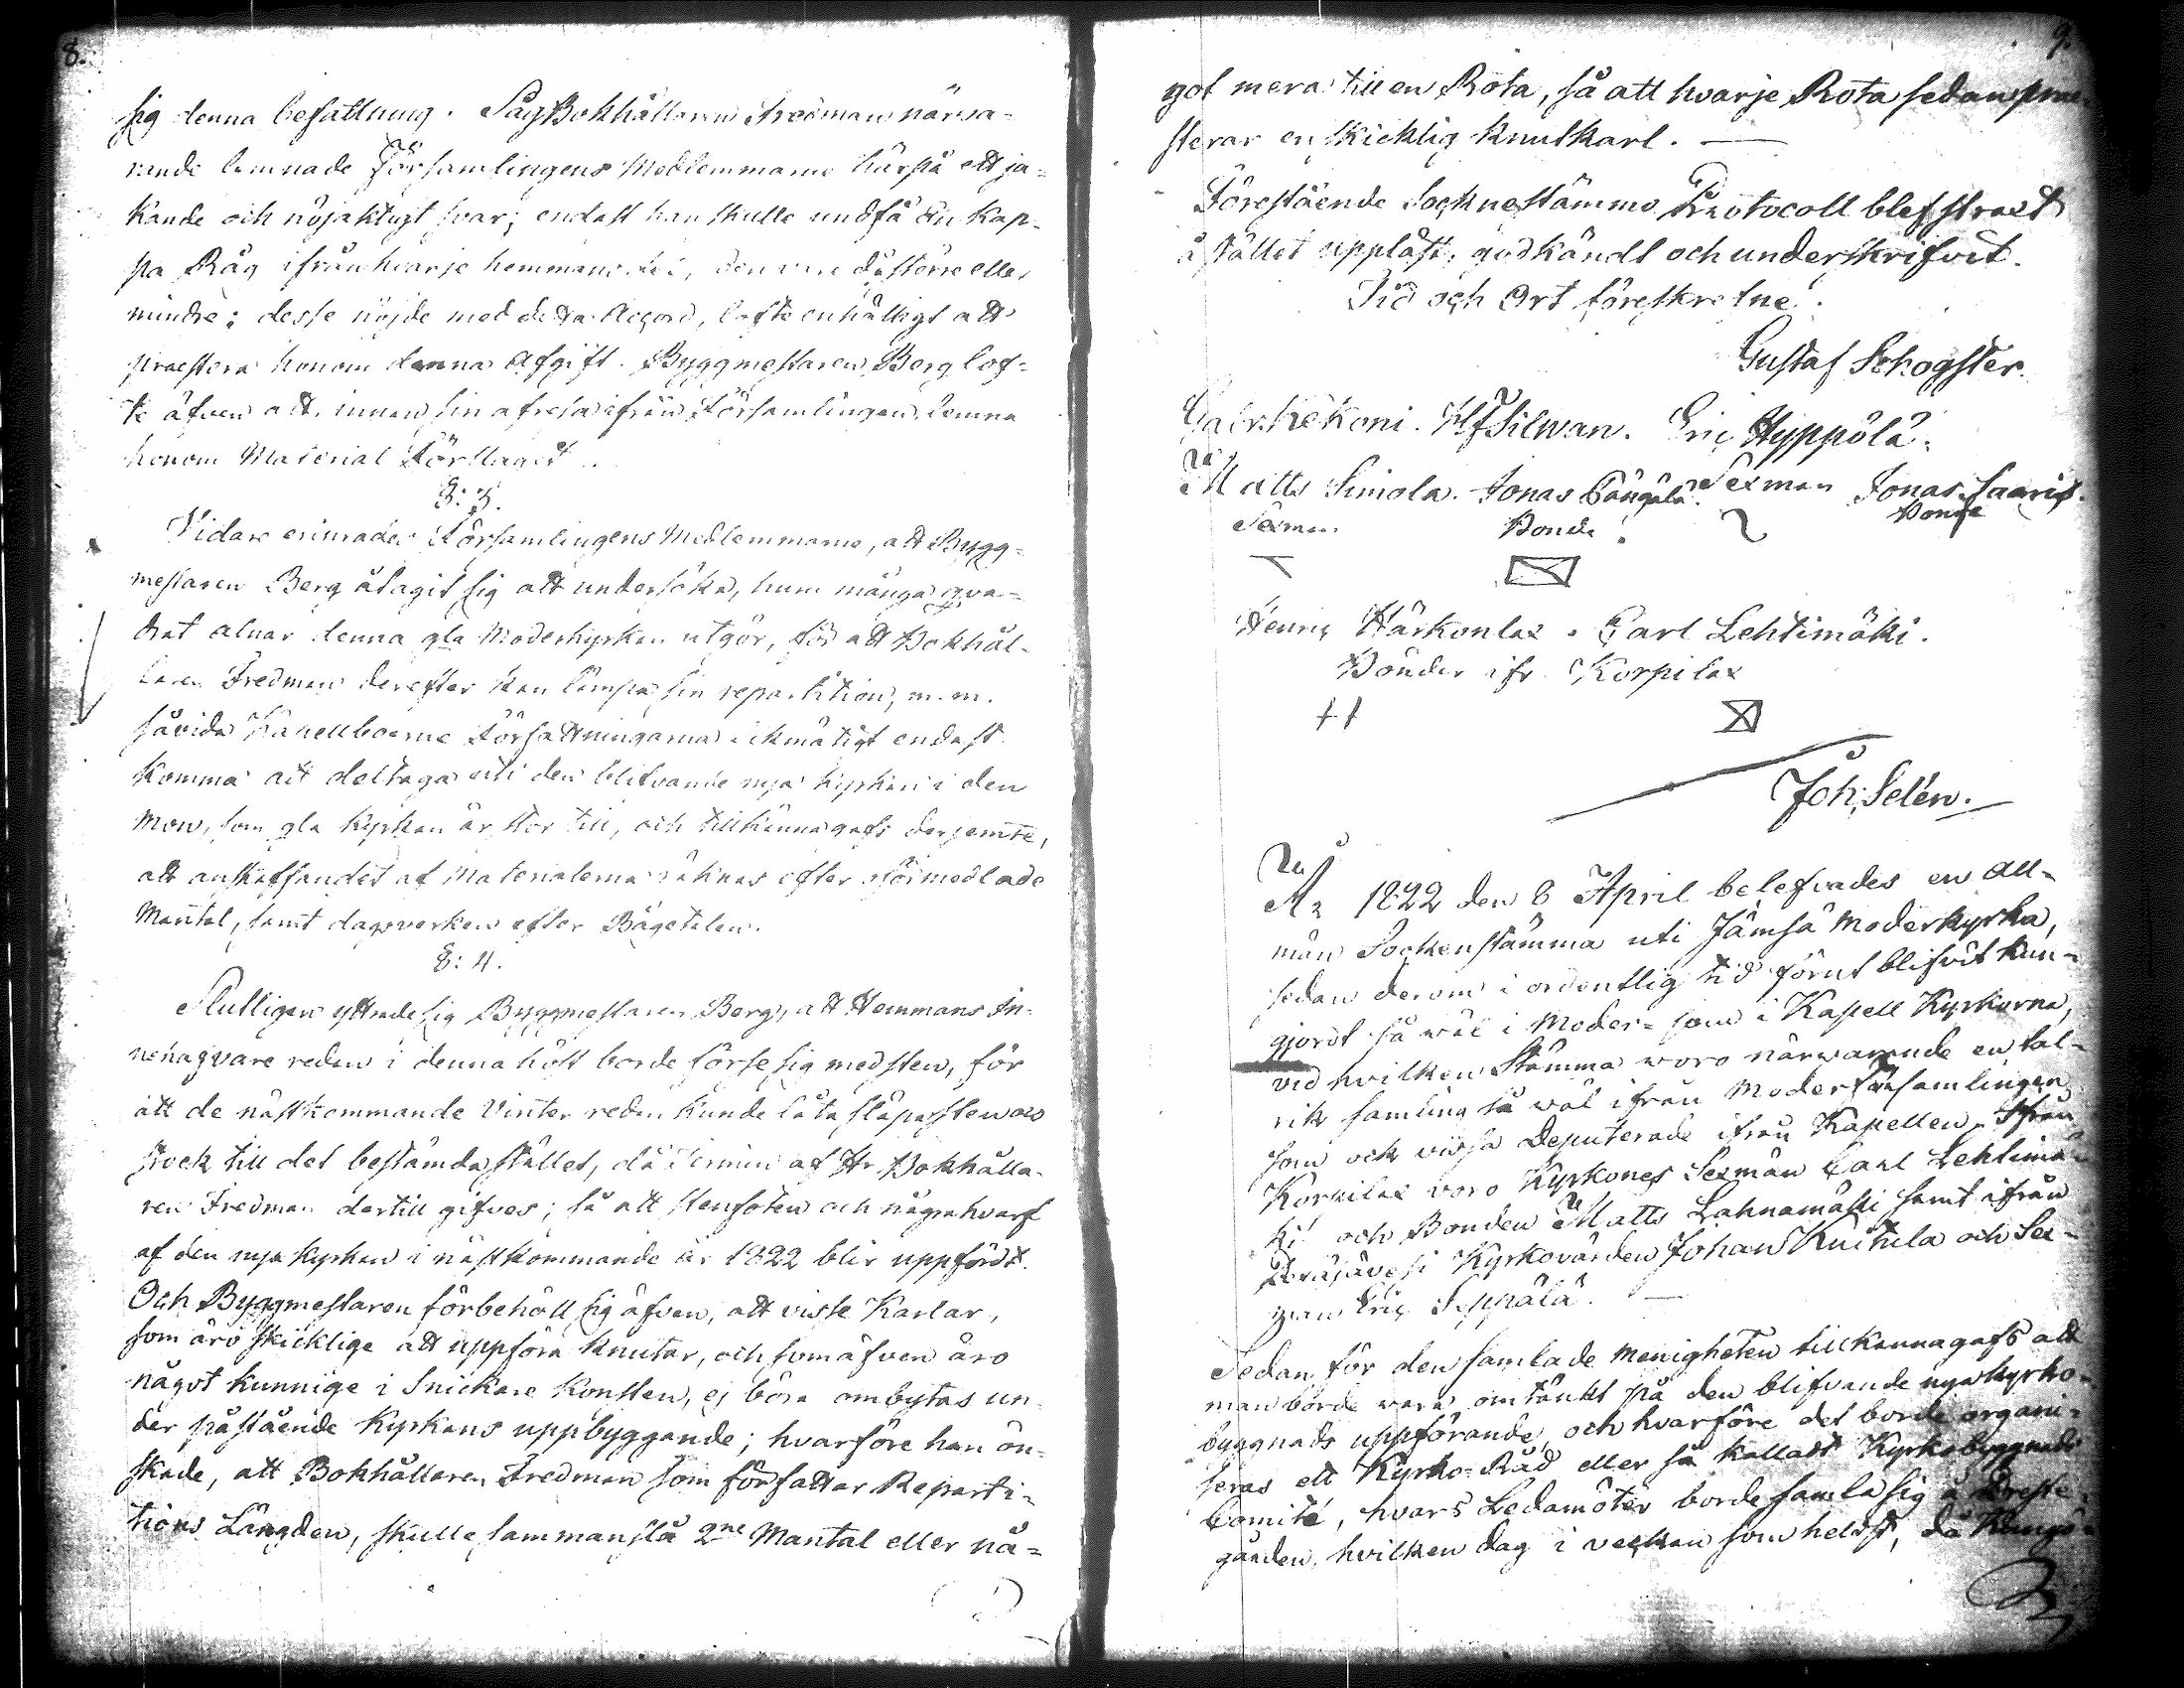 8.
sig denna befattning. Såg Bokhållaren Fredman närva-
rande lemnade Församlingens Medlemmarne härpå ett ja-
kande och nöjaktigt svar; endast han skulle undfå en Kap-
pa Råg ifrån hvarje hemmans del, den vare då större eller
mindre; desse nöjde med detta Accord, lofte enhälligt att
præstera honom denna Afgift. Byggmestaren Berg lof-
te äfven att innan sin afresa ifrån Församlingen lemna
honom Material Förslaget.
§: 3.
Vidare erinrades Församlingens Medlemmarne, att Bygg-
mestaren Berg åtagit sig att undersöka, huru många qva-
drat alnar denna gla Moderkyrkan utgör, för att Bokhål-
laren Fredman derefter kan lämpa sin repartition, m.m.
såvida Kapellboerne Författningarna likmätigt endast
komma att deltaga uti den blifvande nya kyrkan i den
mon, som gla Kyrkan är stor till, och tillkännagafs derjemte,
att anskaffandet af Materialerna räknas efter oförmedlade
Mantal, samt dagsverken efter Bågetalen.
§: 4.
Slutligen yttrade sig Byggmestaren Berg, att Hemmans In-
nehagvare redan i denna höst borde förse sig med sten, för
att de nästkommande Vinter redan kunde låta släpa sten och
stock till det bestämda stället, då Termin af Hr Bokhålla-
ren Fredman dertill gifves; så att stenfoten och några hvarf
af den nya kyrkan i nästkommande år 1822 blir uppfördt.
Och Byggmestaren förbehöll sig äfven, att visse Karlar,
som äro skicklige att uppföra knutar, och som äfven äro
något kunnige i Snickare Konsten, ej böra ombytas un-
der påstående Kyrkans uppbyggande; hvarföre han ön-
skade, att Bokhållaren Fredman som författar Reparti-
tions Längden, skulle sammanslå 2ne Mantal eller nå-
9.
got mera till en Rota, så att hvarje Rota sedan præ-
sterar en skicklig Knutkarl. —
Förestående Socknestämmo Protocoll blef straxt
å stället uppläst, godkändt och underskrifvit.
Tid och Ort föreskrefne.
Gustaf Schogster.
Gabr. Kekoni. Silwan. Eric Hyppölä.
Matts Simola. Jonas Pångälä. Sexman Jonas Saaris.
Sexman Bonde Bonde
Henric Härkonlax. Carl Lehtimäki.
Bönder ifr. Korpilax
Joh: Selén.
År 1822 den 8 April belefvades en all-
män Sockenstämma uti Jämsä Moderkyrka,
sedan derom i ordentlig tid förut blifvit kun-
gjordt så wäl i Moder- som i Kapell Kyrkorna,
vid hvilken Stämma woro närwarande en tal-
rik samling så wäl ifrån Moderförsamlingen
som ock vissa Deputerade ifrån Kapellen. Ifrån
Korpilax voro Kyrkones Sexman Carl Lehtimä-
ki och Bonden Matts Lahnamäki samt ifrån
Petäjävesi Kyrkovärden Johan Kuitula och Sex-
man Eric Seppälä. —
Sedan för den samlade Menigheten tillkännagafs att
man borde vara omtänkt på den blifvande nya kyrko-
byggnads uppförande, och hvarföre det borde organi-
seras ett Kyrko-Råd eller så kalladt Kyrkobyggnads
Comité, hvars Ledamöter borde samla sig å Preste-
gården, hvilken dag i veckan som heldst, då Kungö-